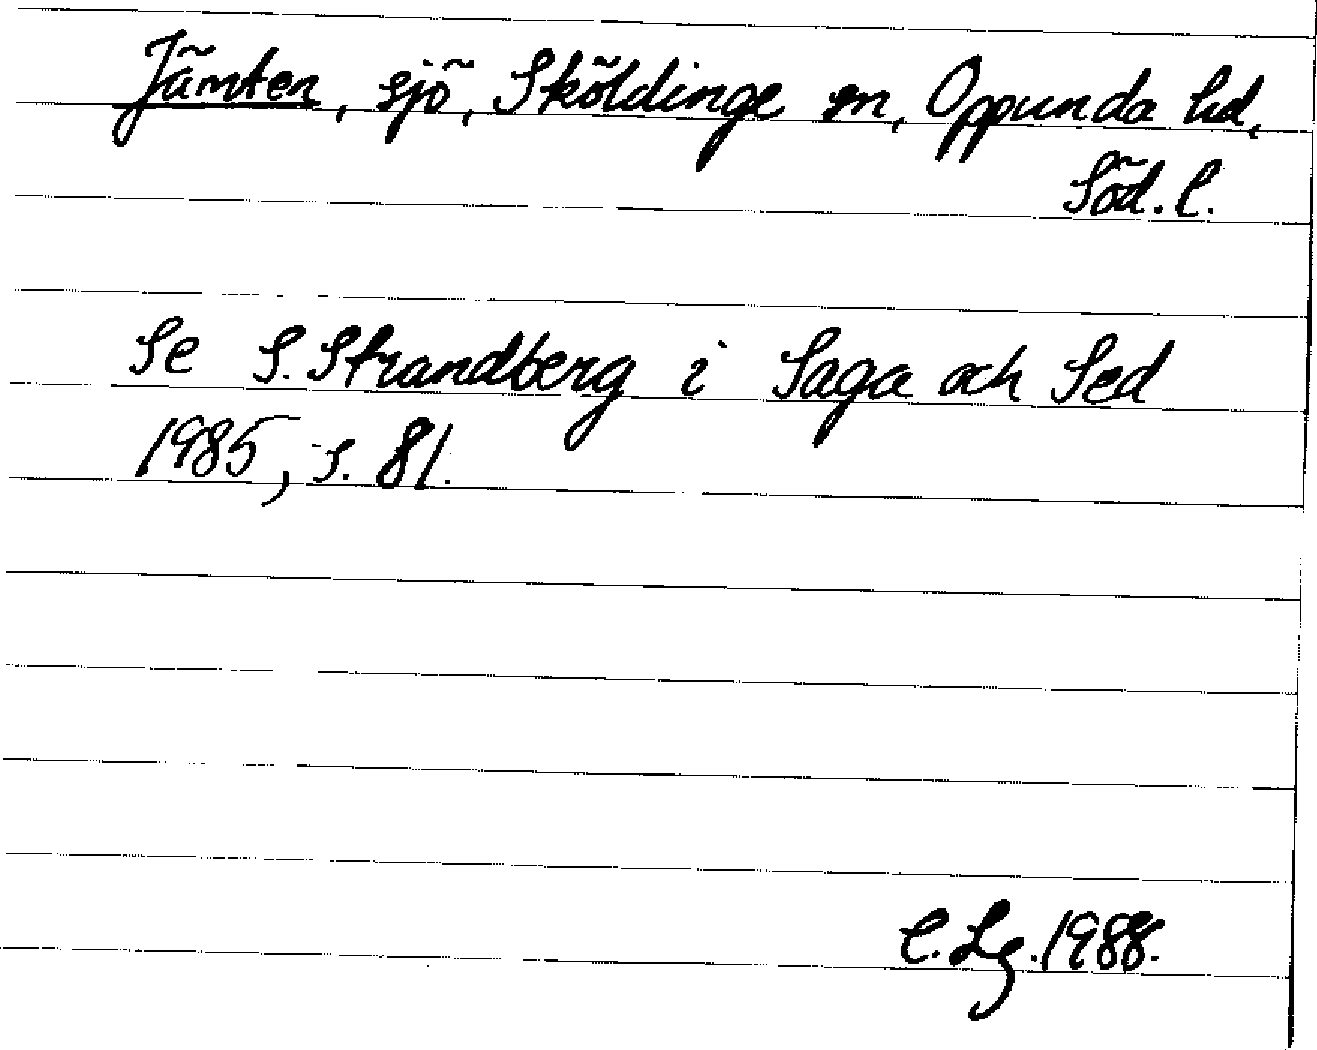 Jämten, sjö, Sköldinge sn, Oppunda hd,
Söd. l.
Se S. Strandberg i Saga och Sed
1985, s. 81.
C. Lg. 1988.